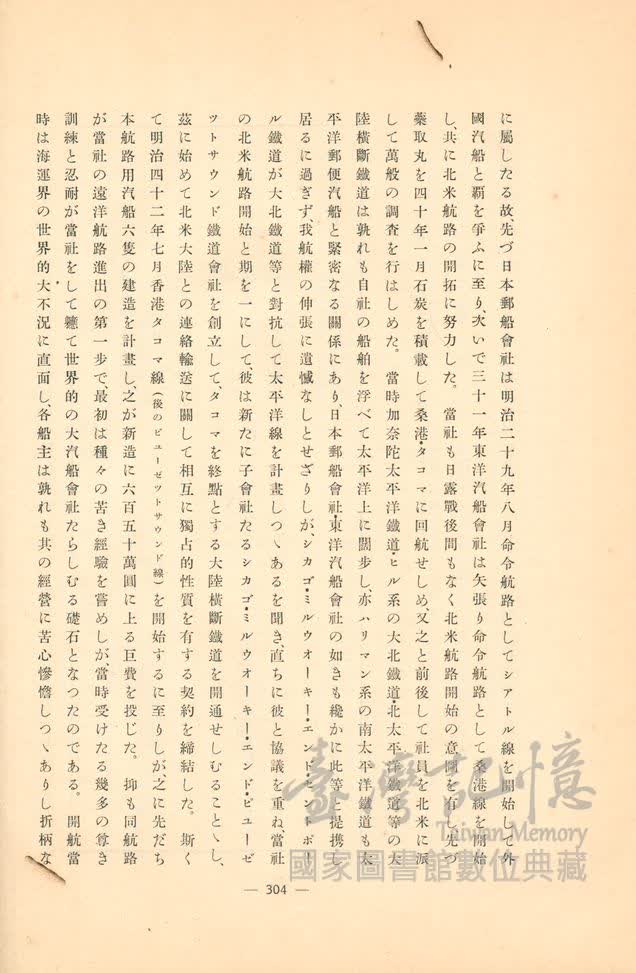 に屬したる故、先づ日本郵船會社は明治二十九年八月命令航路としてシアトル線を開始して外
國汽船と覇を爭ふに至り、次いで三十一年東洋汽船會社は矢張り命令航路として桑港線を開始
し、共に北米航路の開拓に努力した。當社も日露戰後間もなく北米航路開始の意圖を有し、先づ
藥取丸を四十年一月石炭を積載して桑港・タコマに回航せしめ、又之と前後して社員を北米に派
して萬般の調査を行はしめた。當時加奈陀太平洋鐵道・ヒル系の大北鐵道・北太平洋鐵道等の大
陸横斷鐵道は孰れも自社の船舶を浮べて太平洋上に闊步し、亦ハリマン系の南太平洋鐵道も太
平洋郵便汽船と緊密なる關係にあり、日本郵船會社・東洋汽船會社の如きも纔かに此等と提携し
居るに過ぎず、我航權の伸張に遺憾なしとせざりしが、シカゴ・ミルウオーキー・エンド・セントポー
ル鐵道が大北鐵道等と對抗して太平洋線を計畫しつゝあるを聞き、直ちに彼と協議を重ね、當社
の北米航路開始と期を一にして、彼は新たに子會社たるシカゴ・ミルウオーキー・エンド・ピユーゼ
ツトサウンド鐵道會社を創立して、タコマを終點とする大陸横斷鐵道を開通せしむることゝし、
茲に始めて北米大陸との連絡輸送に關して相互に獨占的性質を有する契約を締結した。斯く
て明治四十二年七月香港タコマ線(後のピユーゼツトサウンド線)を開始するに至りしが、之に先だち
本航路用汽船六隻の建造を計畫し、之が新造に六百五十萬圓に上る巨費を投じた。抑も同航路
が當社の遠洋航路進出の第一步で、最初は種々の苦き經驗を嘗めしが、當時受けたる幾多の尊き
訓練と忍耐が當社をして軈て世界的の大汽船會社たらしむる礎石となつたのである。開航當
時は海運界の世界的大不況に直面し、各船主は孰れも其の經營に苦心慘憺しつゝありし折柄な
— 304 —
臺灣記憶
Taiwan Memory
國家圖書館數位典藏